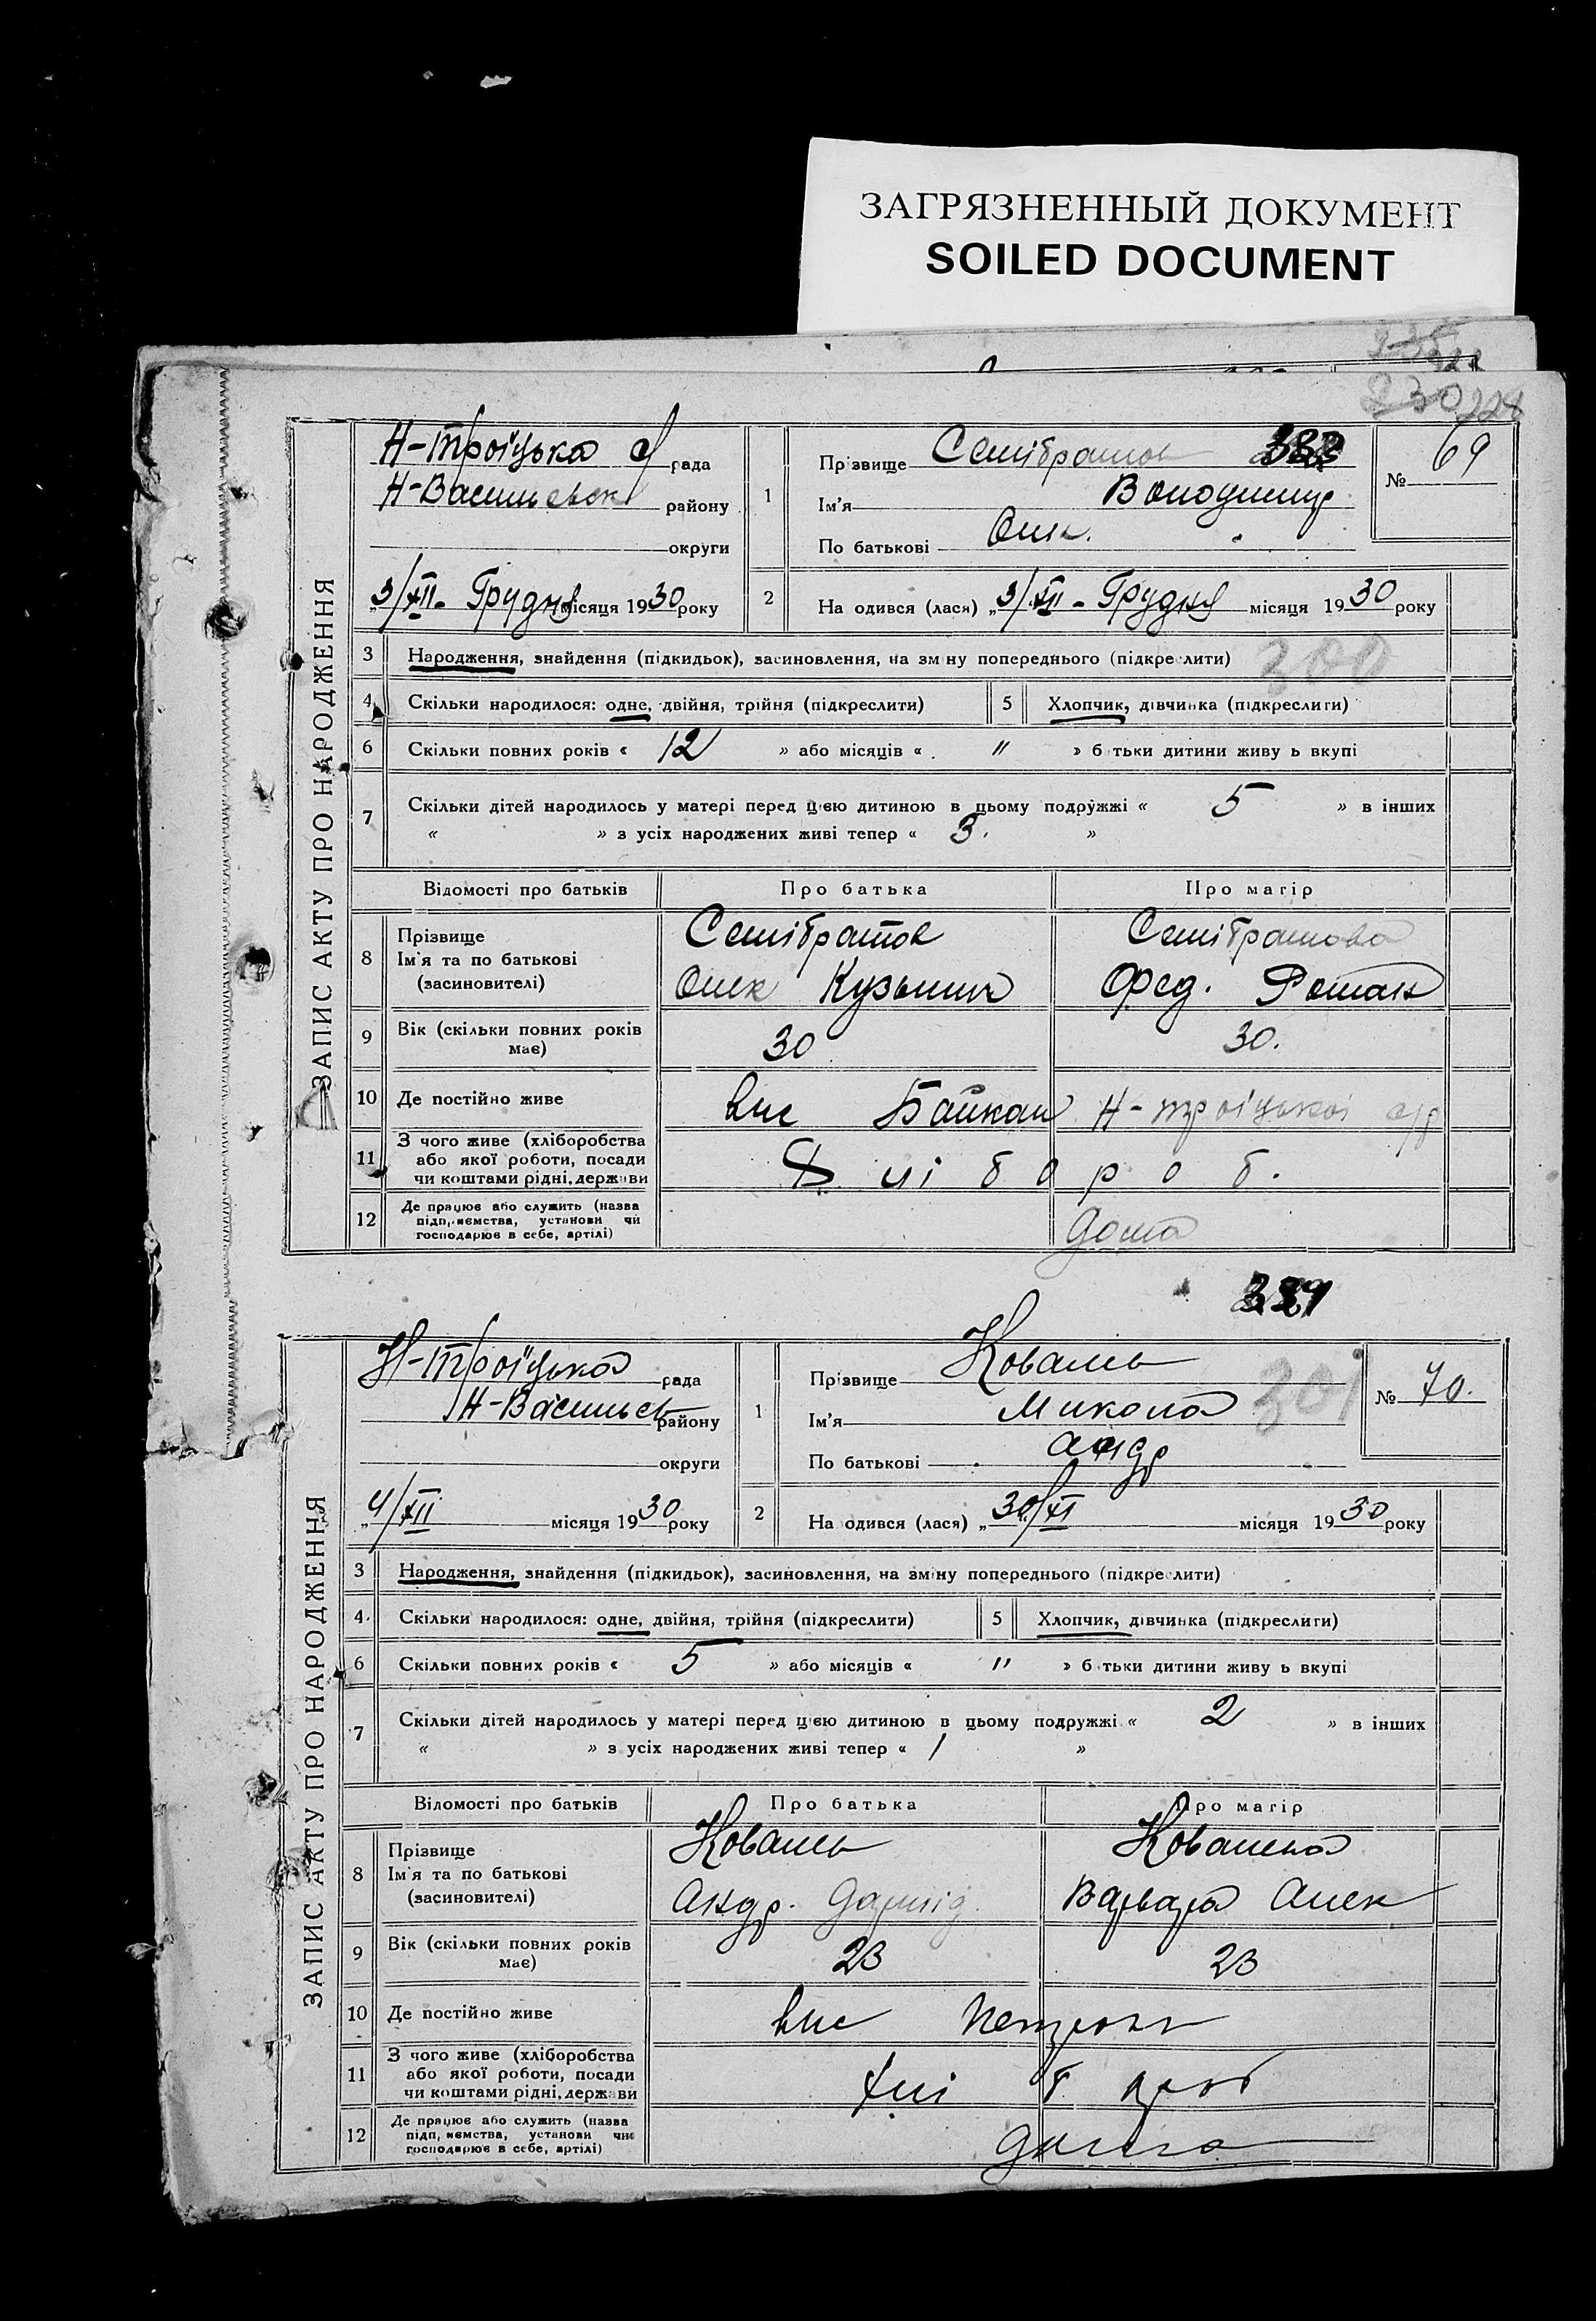 ЗАГРЯЗНЕННЫЙ ДОКУМЕНТ
SOILED DOCUMENT
235
230 228
ЗАПИС АКТУ ПРО НАРОДЖЕННЯ
Н-Троїцька с/ рада
Н-Васильевск району
округи
3/XII- Грудня місяця 1930 року
1 Прізвище Семібратов
Ім'я Володимир
По батькові Олек.
№ 69
2 На одився (лася) „3/XII - Грудня місяця 1930 року
3 Народження, знайдення (підкидьок), засиновлення, на зм ну попереднього (підкре лити)
300
4 Скільки народилося: одне, двійня, трійня (підкреслити) 5 Хлопчик, дівчинка (підкреслити)
6 Скільки повних років « 12 » або місяців « " » б тьки дитини живу ь вкупі
7 Скільки дітей народилось у матері перед цією дитиною в цьому подружжі « 5 » в інших
« » з усіх народжених живі тепер « 3. »
Відомості про батьків Про батька Про матір
8 Прізвище Семібратов Семібратова
Ім'я та по батькові
(засиновителі) Олек Кузьмич Фед. Роман
9 Вік (скільки повних років має) 30 30.
10 Де постійно живе вис Байкал Н-троїцької с/р
11 З чого живе (хліборобства
або якої роботи, посади
чи коштами рідні, держави Хлібороб.
12 Де працює або служить (назва
підп, иємства, установи чи
господарює в себе, артілі) дома
ЗАПИС АКТУ ПРО НАРОДЖЕННЯ
Н-Троїцька рада
Н-Васильев району
округи
„4/XII місяця 1930 року
1 Прізвище Коваль
Ім'я Микола
По батькові Андр
301
№ 70.
2 На одився (лася) „30/XI місяця 1930 року
3 Народження, знайдення (підкидьок), засиновлення, на зміну попереднього (підкре лити)
4. Скільки народилося: одне, двійня, трійня (підкреслити) 5 Хлопчик, дівчинка (підкреслити)
6 Скільки повних років « 5 » або місяців « " » б тьки дитини живу ь вкупі
7 Скільки дітей народилось у матері перед цією дитиною в цьому подружжі « 2 » в інших
« » з усіх народжених живі тепер « 1 »
Відомості про батьків Про батька Про матір
8 Прізвище Коваль
Ім'я та по батькові
(засиновителі) Андр. Варвара Олек
9 Вік (скільки повних років має) 23 23
10 Де постійно живе вис
11 З чого живе (хліборобства
або якої роботи, посади
чи коштами рідні, держави хлібороб
12 Де працює або служить (назва
підп, иємства, установи чи
господарює в себе, артілі) дома